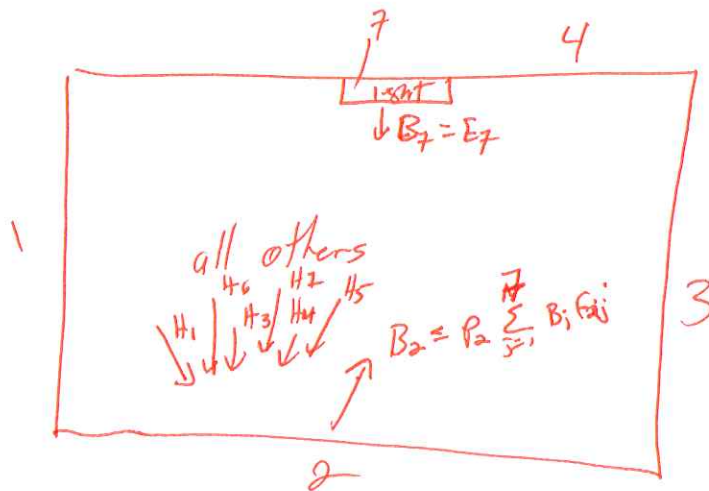 7
4
light
B₇ = E₇
1
all others
H₁ H₆ H₃ H₇ H₄ H₅
3
B₂ = P₂ Σ B_j F₂j
j=1
2